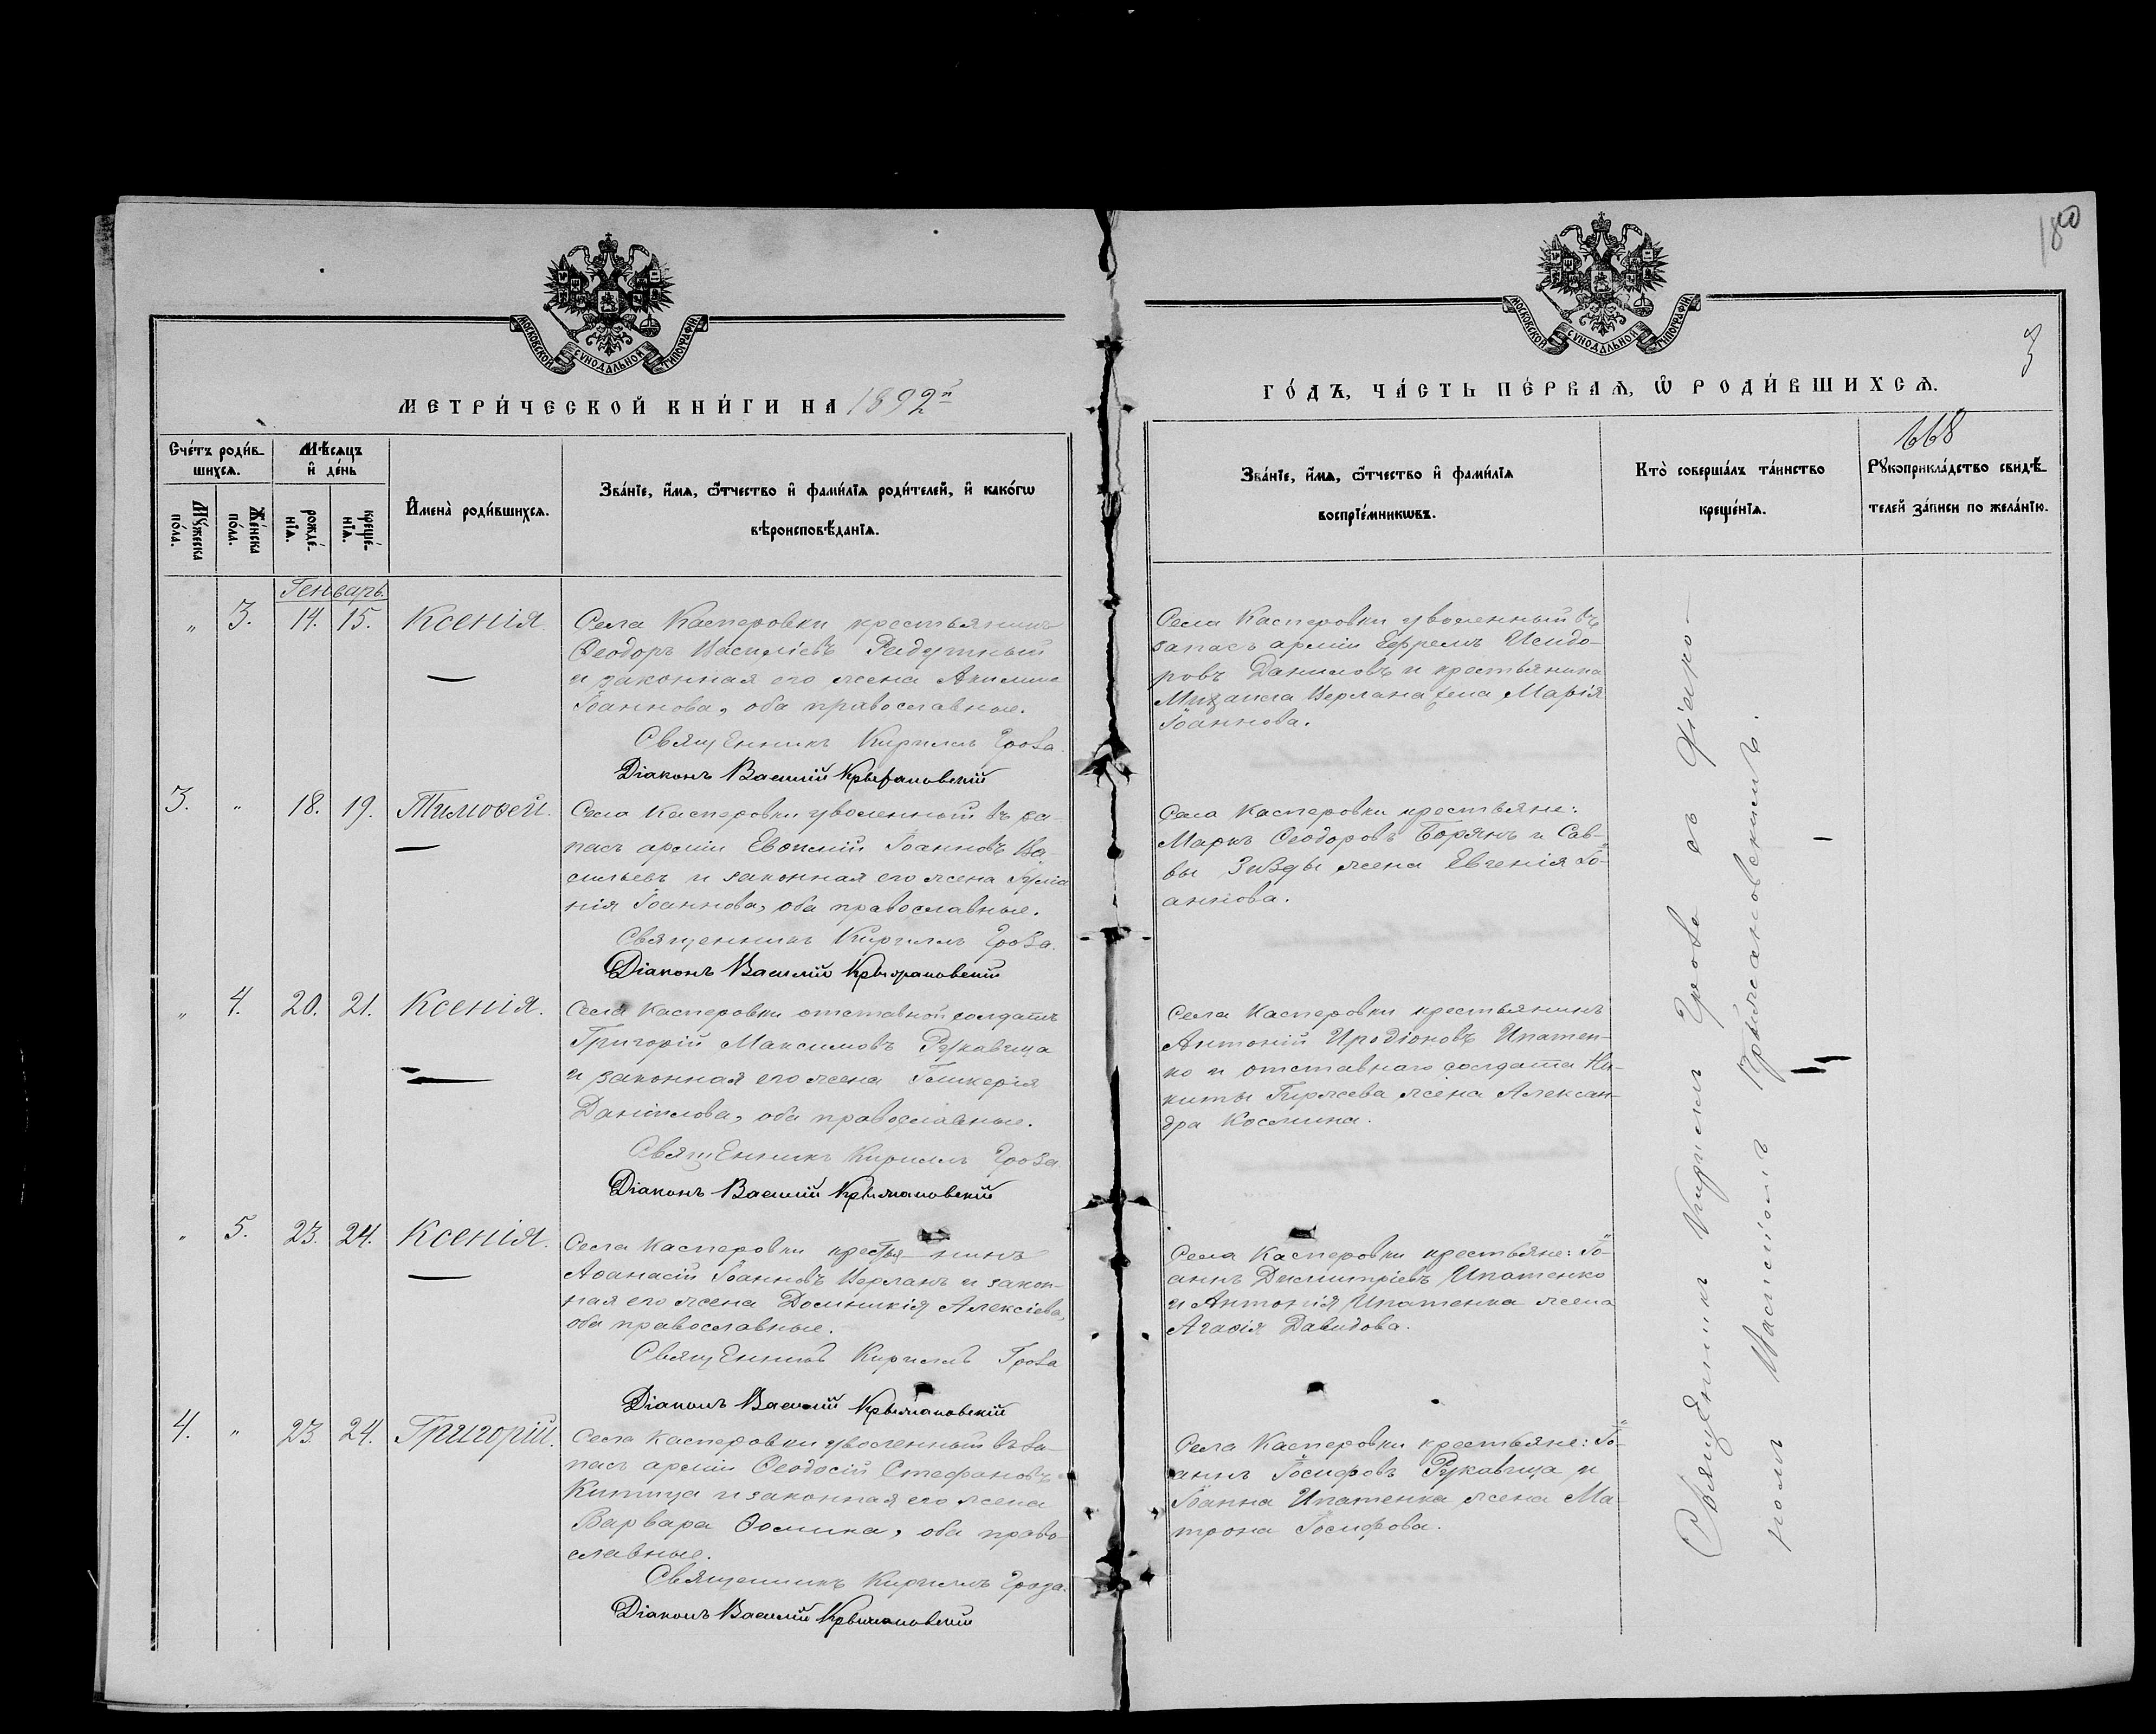 180
3
МОСКОВСКОЙ СѴНОДАЛЬНОЙ ТИПОГРАФІИ
МОСКОВСКОЙ СѴНОДАЛЬНОЙ ТИПОГРАФІИ
МЕТРИ́ЧЕСКОЙ КНИ́ГИ НА 1892й
ГО́ДЪ, ЧА́СТЬ ПЕ́РВАѦ, Ѡ҆ РОДИ́ВШИХСѦ.
668
Сче́тъ роди́в-
шихсѧ.
Мꙋ́жеска
по́ла.
Же́нска
по́ла.
Мѣ́сѧцъ
и҆ де́нь
рожде́-
нїѧ.
креще́-
нїѧ.
И҆мена̀ роди́вшихсѧ.
Зва́нїе, и҆́мѧ, ѻ҆́тчество и҆ фами́лїѧ роди́телей, и҆ како́гѡ
вѣроисповѣ́данїѧ.
Зва́нїе, и҆́мѧ, ѻ҆́тчество и҆ фами́лїѧ
воспрїе́мникѡвъ.
Кто̀ соверша́лъ та́инство
креще́нїѧ.
Рꙋкоприкла́дство свидѣ́-
телей за́писи по жела́нїю.
Генварь.
„ 3. 14. 15. Ксенія.
Села Касперовки крестьянинъ
Ѳеодоръ Василіевъ Радутный
и законная его жена Акилина
Іоаннова, оба православные.
Священникъ Кириллъ Гроза.
Діаконъ Василій Крыжановскій
Села Касперовки уволенный въ
запасъ арміи Ефремъ Исидо-
ровъ Даниловъ и крестьянина
Михаила Верлана жена Марія
Іоаннова.
3. „ 18. 19. Тимоѳей.
Села Касперовки уволенный въ за-
пасъ арміи Евѳимій Іоанновъ Ва-
сильевъ и законная его жена Іулiа
нія Іоаннова, оба православные.
Священникъ Кириллъ Гроза.
Діаконъ Василій Крыжановскій
Села Касперовки крестьяне:
Маркъ Ѳеодоровъ Борянъ и Сав-
вы Зизды жена Евгенія Іо-
аннова.
„ 4. 20. 21. Ксенія.
Села Касперовки отставной солдатъ
Григорій Максимовъ Рукавица
и законная его жена Гликерія
Даніилова, оба православные.
Священникъ Кириллъ Гроза
Діаконъ Василій Крыжановскій
Села Касперовки крестьянинъ
Антоній Иродіоновъ Ипатен-
ко и отставнаго солдата Ни-
киты Гиржева жена Алексан-
дра Космина.
„ 5. 23. 24. Ксенія.
Села Касперовки крестья-нинъ
Аѳанасій Іоанновъ Верланъ и закон-
ная его жена Домникія Алексіева,
оба православные.
Священникъ Кириллъ Гроза
Діаконъ Василій Крыжановскій
Села Касперовки крестьяне: Іо-
аннъ Димитріевъ Ипатенко
и Антонія Ипатенка жена
Агаѳія Давидова.
4. „ 23. 24. Григорій.
Села Касперовки уволенный въ за-
пасъ арміи Ѳеодосій Стефановъ
Китица и законная его жена
Варвара Ѳомина, оба право-
славные.
Священникъ Кириллъ Гроза.
Діаконъ Василій Крыжановскій
Села Касперовки крестьяне: Іо-
аннъ Іосифовъ Рукавица и
Іоанна Ипатенка жена Ма-
трона Іосифова.
Священникъ Кириллъ Гроза съ Діако-
номъ Василіемъ Крыжановскимъ.